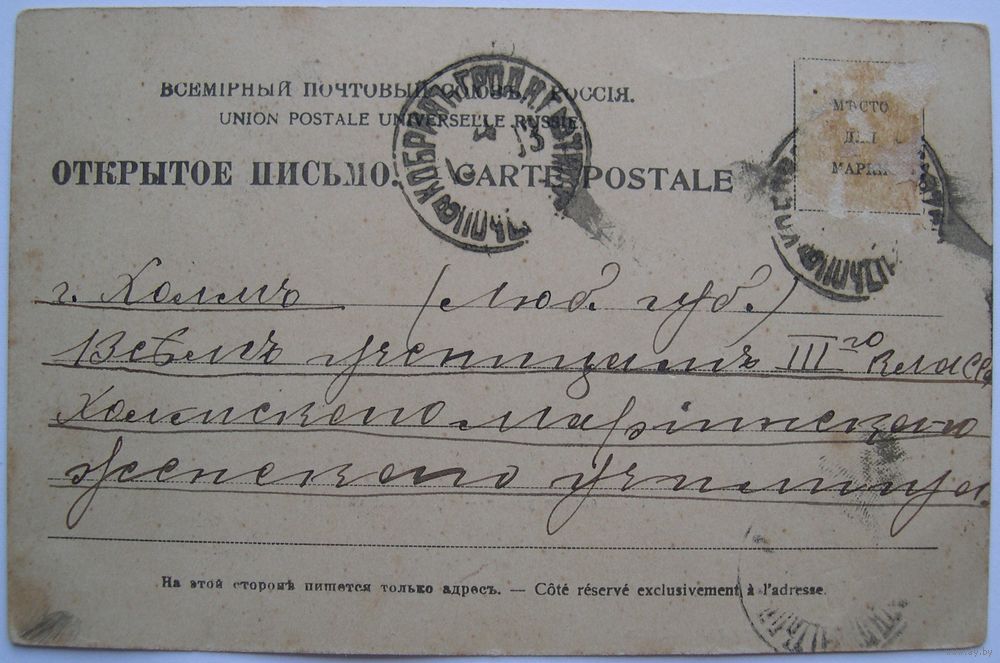 ВСЕМІРНЫЙ ПОЧТОВЫЙ СОЮЗЪ. РОССІЯ.
UNION POSTALE UNIVERSELLE RUSSIE
ОТКРЫТОЕ ПИСЬМО. CARTE POSTALE
МѢСТО
ДЛЯ
МАРКИ
КОБРИНЪ ГРОДН. Г.
г. Холмъ (Люб. губ.)
Всѣмъ ученицамъ III го класса
Холмскаго Маріинскаго
женскаго училища.
На этой сторонѣ пишется только адресъ. — Côté réservé exclusivement à l'adresse.